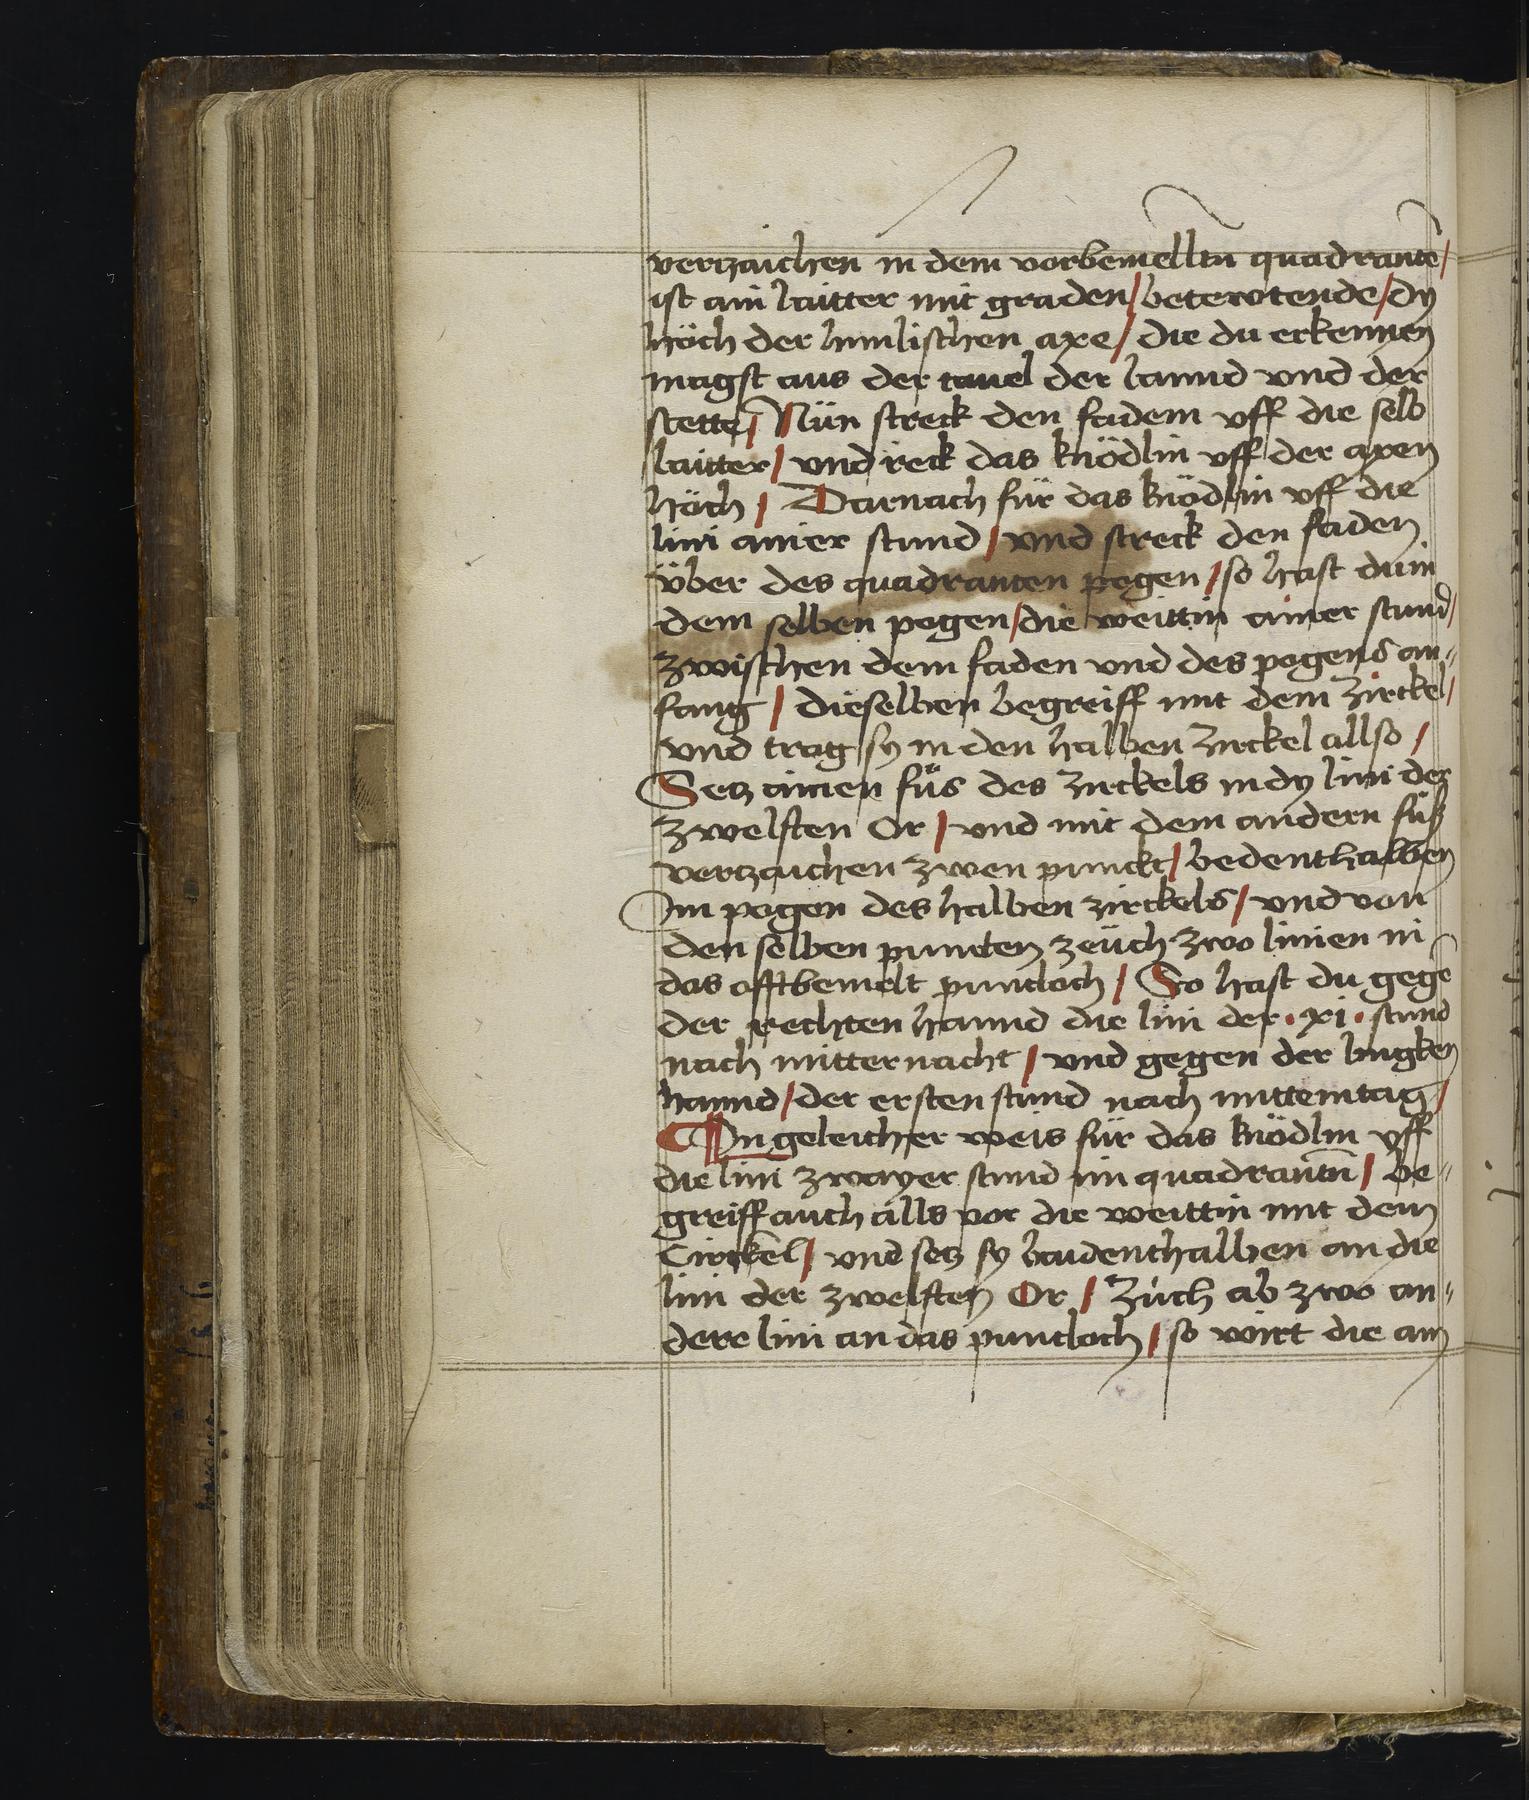 vertzaichen in dem vorbemelltn quadrantē /
ist ain laitter mit graden / betewtende / dy
höch der himlischen axe / die du erkennen
magst aus der tauel der lannd vnd der
stette / Nün streck den fadem vff die selb
laitter / vnd reck das knödlin vff der axen
höch / Darnach für das knödlin vff die
lini ainer stund / vnd streck den faden
über des quadranten pogen / so hast du in
dem selben pogen / die weittin ainer stund /
zwischen dem faden vnd des pogens an-
fang / dieselben begreiff mit dem zirckel /
vnd trag sy in den halben zirckel allso /
Setz ainen füs des zirckels in dy lini der
zwelften Or / vnd mit dem andern füß
vertzaichen zwen punckt / bedenthalben
Im pogen des halben zirckels / vnd von
den selben puncten zeüch zwo linien in
das offtbemelt puncloch / So hast du gegē
der rechten hannd die lini der · xi · stund
nach mitternacht / vnd gegen der lingken
hannd / der ersten stund nach mittemtag /
In geleicher weis für das knödlin vff
die lini zwayer stund im quadrantn̄ / be-
greiff auch alls vor die weittin mit dem
Circkel / vnd setz sy baidenthalben an die
lini der zwelften Or / Züch ab zwo an-
dere lini an das puncloch / so wirt die ain